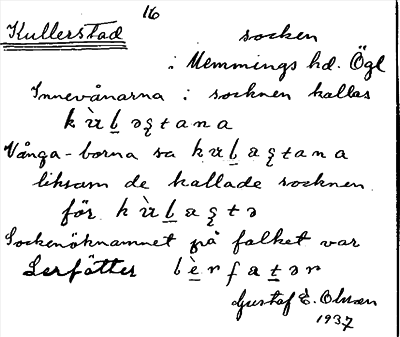 16
Kullerstad socken
i Memmings hd. Ögl
Innevånarna i socknen kallas
kùḷəstana
Vånga-borna sa kuḷastana
liksom de kallade socknen
för kùḷastə
Sockenöknamnet på folket var
Lerfötter lèrfatər
Gustaf E. Olsson
1937